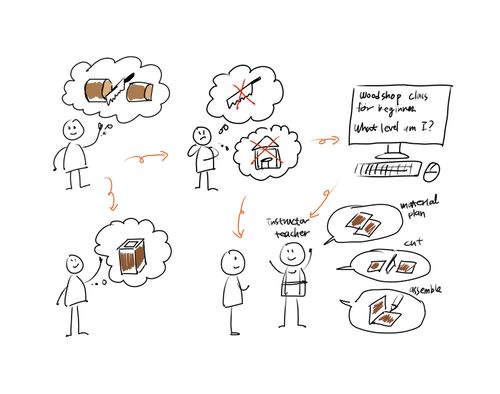 Woodshop class
for beginner
What level am I?
instructor
teacher
material
plan
cut
assemble